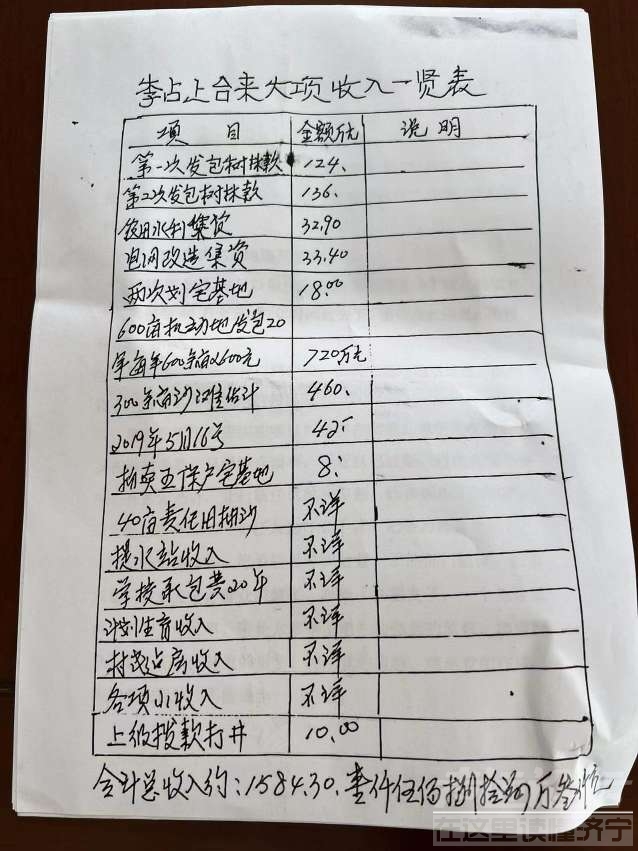 李占上台来大项收入一览表
项 目 金额万元 说 明
第一次发包树株款 124.
第2次发包树株款 136.
饮用水利集资 32.90
电网改造集资 33.40
两次划宅基地 18.00
600亩机动地发包20
年每年600亩x600元 720万元
300余亩沙滩估计 460.
2019年5月16号 42.
拍卖五保户宅基地 8.
40亩责任田抽沙 不详
提水站收入 不详
学校承包共20年 不详
计划生育收入 不详
村民占房收入 不详
各项小收入 不详
上级拨款打井 10.00
合计总收入约:1584.30.壹仟伍佰捌拾肆万叁仟
在这里读懂济宁